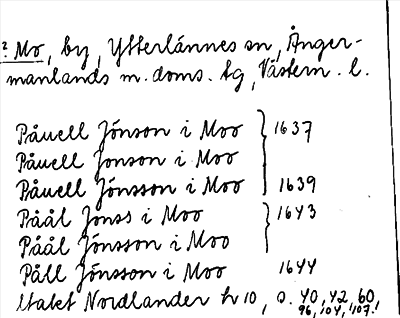 2. Mo, by, Ytterlännes sn, Ånger-
manlands m. doms. tg, Västern. l.
Påuell Jönson i Moo } 1637
Påuell Jonson i Moo
Påuell Jönsson i Moo 1639
Påål Jonss i Moo } 1643
Påål Jönsson i Moo
Påll Jönsson i Moo 1644
Utalet Nordlander h 10, o. 40, 42, 60,
96, 104, 107.